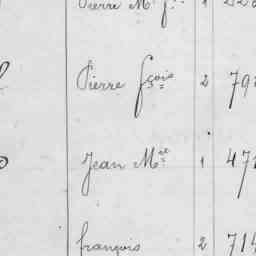 Pierre M. f. 1
Pierre fçois 2 79
Jean Mie 1 47
françois 2 714